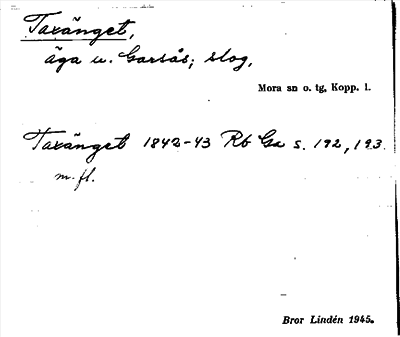 Taxänget,
äga u. Garsås; slog,
Mora sn o. tg, Kopp. l.
Taxänget 1842-43 Rb Ga s. 192, 193.
m. fl.
Bror Lindén 1945.